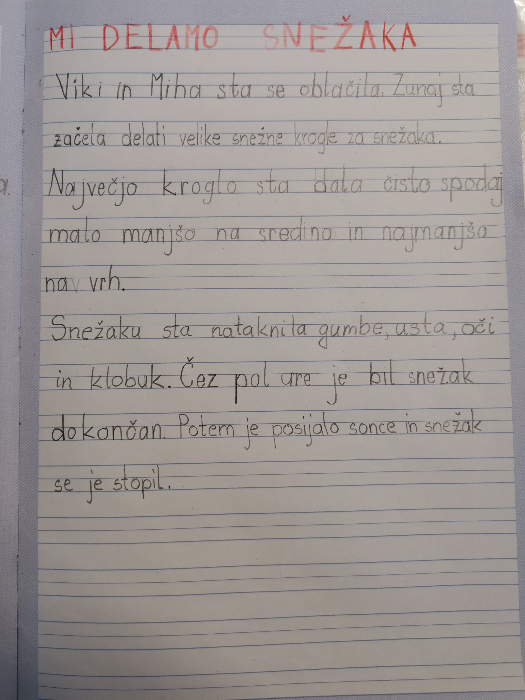 MI DELAMO SNEŽAKA
Viki in Miha sta se oblačila. Zunaj sta
začela delati velike snežne krogle za snežaka.
Največjo kroglo sta dala čisto spodaj
malo manjšo na sredino in najmanjšo
na vrh.
Snežaku sta nataknila gumbe, usta, oči
in klobuk. Čez pol ure je bil snežak
dokončan. Potem je posijalo sonce in snežak
se je stopil.
a.